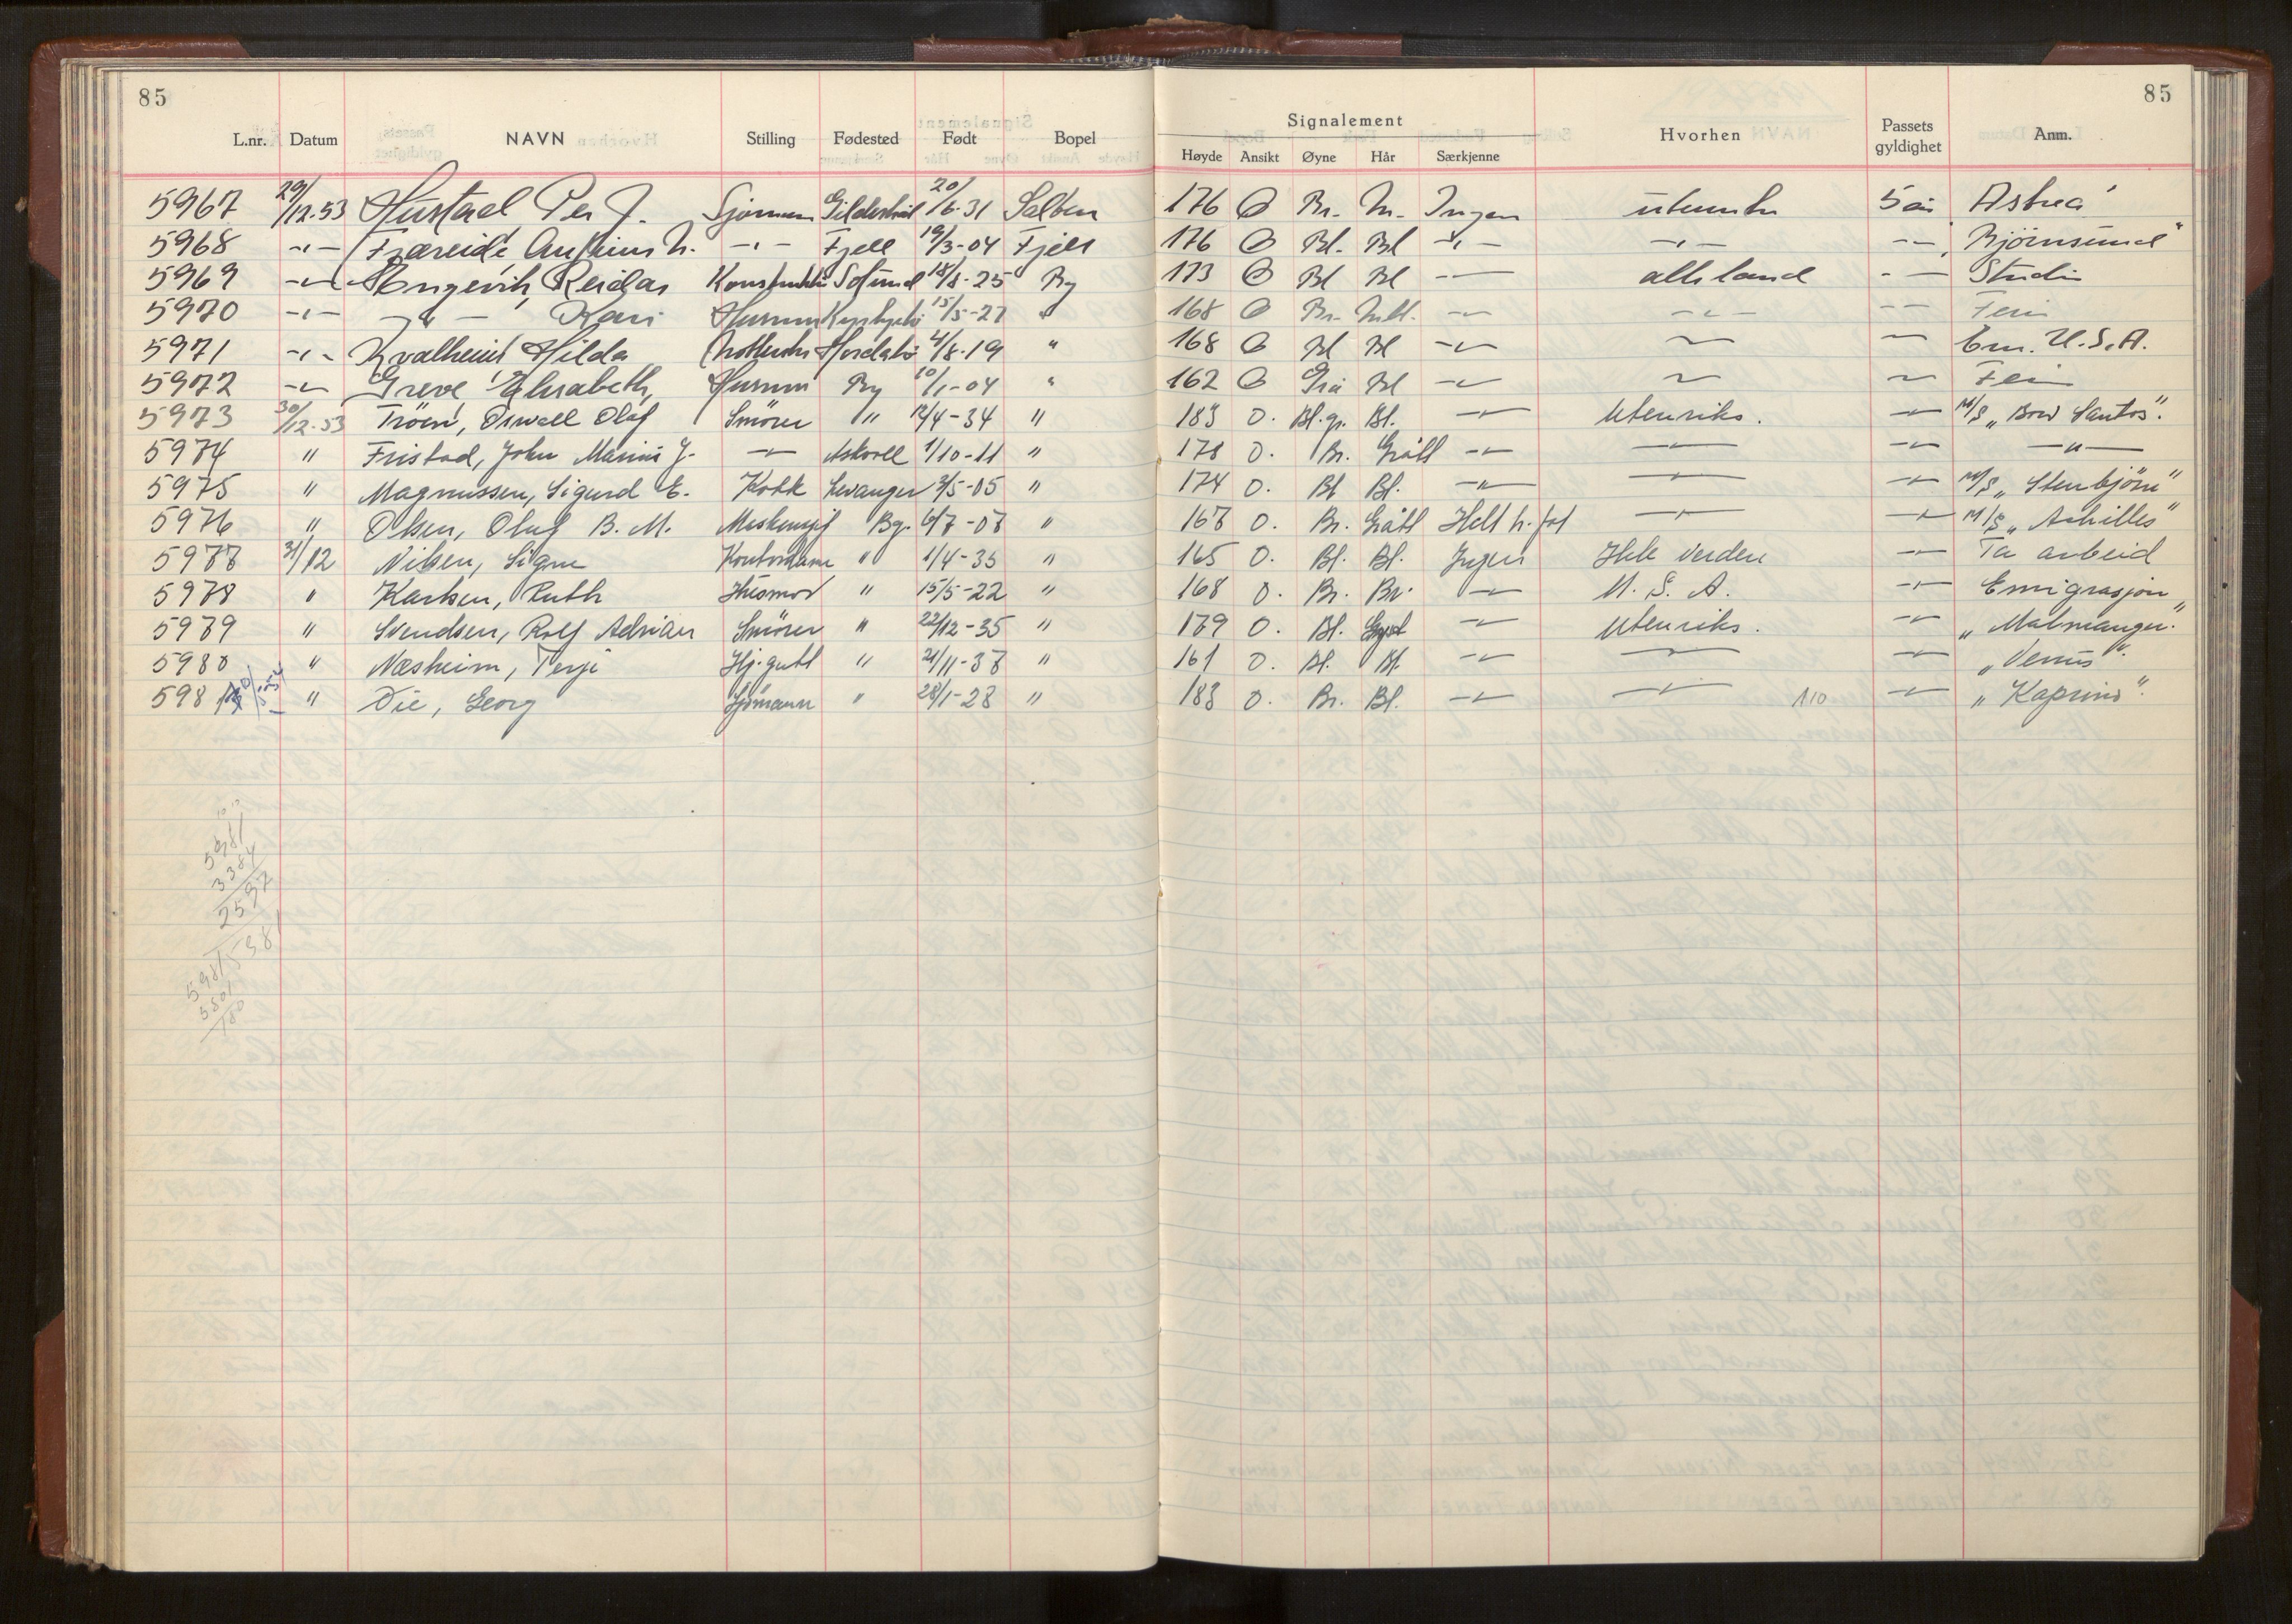 85
85
Signalement
L.nr. Datum NAVN Stilling Fødested Født Bopel Høyde Ansikt Øyne Hår Særkjenne Hvorhen Passets gyldighet Anm.
5967 29/12.53 Hustad Per J. Sjømann 20/6-31 176 O Br. M. Ingen 5 år Astrea
5968 -"- Fjæreide -"- Fjell 19/3-04 Fjell 176 O Bl. Bl -"- -"- -"- "Bjørnsund"
5969 -"- Reidar 18/8-25 By 173 O Bl Bl -"- alle land -"- Studie
5970 -"- -"- Kari 15/5-27 " 168 O Br. -"- -"- -"- Ferie
5971 -"- Kvalheim Hilda 4/8-19 " 168 O Bl Bl -"- -"- -"- Em. U.S.A.
5972 -"- Greve, Elisabeth, By 10/1-04 " 162 O Grå Bl -"- -"- -"- Ferie
5973 30/12-53 Tröen, Oswall Olaf Smörer " 12/4-34 " 183 O. Bl.gr. Bl. -"- Utenriks. -"- M/S "Bow Santos".
5974 " Fristad, John Marius J. -"- Askvoll 1/10-11 " 178 O. Br. Grått -"- -"- -"- -"-
5975 " Magnussen, Sigurd E. Kokk Levanger 3/5-05 " 174 O. Bl Bl. -"- -"- -"- M/S "Stenbjörn"
5976 " Olsen, Oluf B. M. Bg. 6/7-07 " 167 O. Br. Grått -"- -"- M/S "Achilles"
5977 31/12 Nilsen, Signe Kontordame " 1/4-35 " 165 O. Bl. Bl. Ingen Hele Verden -"- Ta arbeid
5978 " Karlsen, Ruth Husmor " 15/5-22 " 168 O. Br. Br. -"- U. S. A. -"- Emigrasjon
5979 " Svendsen, Rolf Adrian Smörer " 22/12-35 " 179 O. Bl. -"- Utenriks. -"- "Malmanger."
5980 " Næsheim, Terje Hj.gutt " 21/11-37 " 161 O. Bl. Bl. -"- -"- -"- "Venus".
5981 " Die, Georg Sjömann " 28/1-28 " 183 O. Br. Bl. -"- -"- 110 -"- "Kaprino".
5981
3384
2597
5981
5801
180